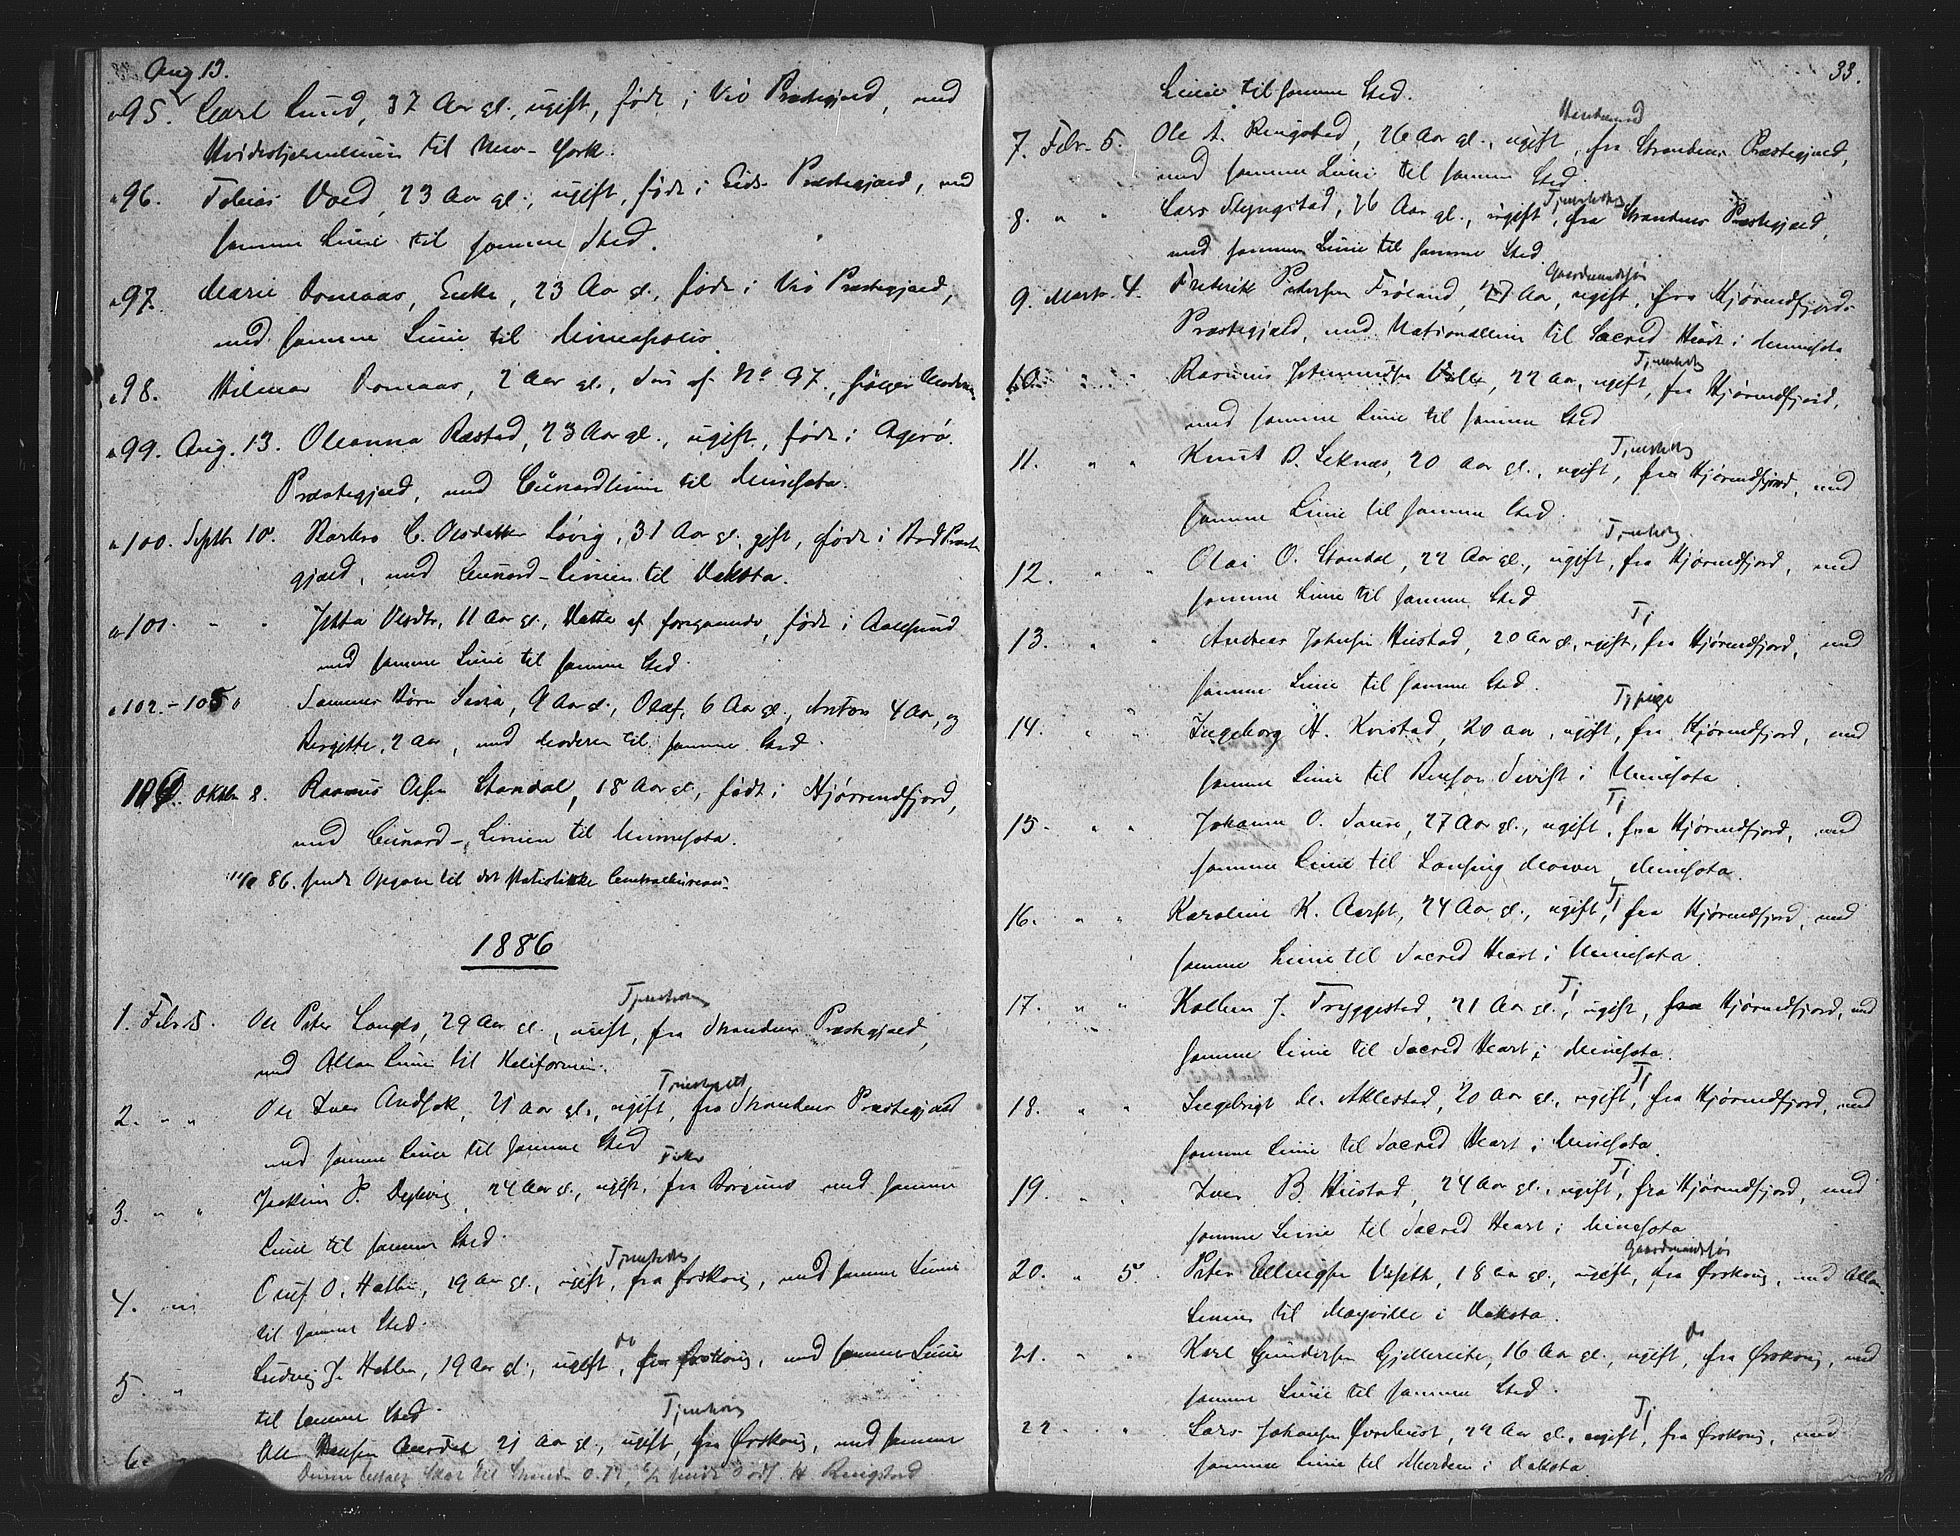 Aug 13.
95. Carl Lund, 37 Aar gl., ugift, født i Vio Præstegjæld, med
Hvidestjernelinien til New-York.
96. Tobias Vold, 23 Aar gl., ugift, født i Eids Præstegjæld, med
samme Linie til samme Sted.
97. Marie Domaas, Enke, 23 Aar gl., født i Vio Præstegjæld,
med samme Linie til Mineapolis.
98. Hilmar Domaas, 2 Aar gl., Søn af No 97, følger Moderen.
99. Aug. 13. Oleanna Røstad, 23 Aar gl., ugift, født i Agerø
Præstegjæld, med Cunardlinien til Minesota.
100. Septbr 10. Barbro C. Olsdatter Løvig, 31 Aar gl., gift, født i Bod Præste
gjæld, med Cunard-Linien til Dakota.
101. " " Jetta Olsdtr, 11 Aar gl., Datter af foregaaende, født i Aalesund
med samme Linie til samme Sted.
102.-105 Sammes Børn Sevia, 9 Aar gl., Olaf, 6 Aar gl., Anton 4 Aar, og
Birgitte, 2 Aar, med Moderen til samme Sted.
106. Oktbr 8. Rasmus Olsen Standal, 18 Aar gl., født i Hjørrendfjord,
med Cunard-Linien til Minnesota.
86. sendt Opgave til det statistiske Centralbureau.
1886
Tjenestedreng
1. Febr. 5. Ole Peter Langlo, 29 Aar gl., ugift, fra Strandens Præstegjæld,
med Allan Linie til Kalifornien.
2. " " Ole Iver Andsok, 21 Aar gl., ugift, fra Strandens Præstegjæld
med samme Linie til samme Sted
Fisker
3. " " Joakim P. Dybvig 24 Aar gl., ugift, fra Borgund med samme
Linie til samme Sted.
4. O. Hatlen, 19 Aar gl., ugift, fra Ørskoug, med samme Linie
til samme Sted.
do
5. " Ludvig J. Hatlen, 19 Aar gl., ugift, fra Ørskoug, med samme Linie
til samme Sted.
6. Ole Hansen 21 Aar gl., ugift, fra Ørskoug, med samme
H. Ringstad
33.
Linie til samme Sted.
7. Febr. 5. Ole A. Ringstad, 26 Aar gl., ugift, fra Strandens Præstegjæld,
med samme Linie til samme Sted.
8. " " Lars Flyngstad, 26 Aar gl., ugift, fra Strandens Præstegjæld,
med samme Linie til samme Sted.
Gaardmandssøn
9. Marts 4. Frederik Petersen Frøland, Aar, ugift, fra Hjørendfjords
Præstegjæld, med Nationallinien til Sacred Heart i Minnesota
10. " " Rasmus 22 Aar, ugift, fra Hjørendfjord,
med samme Linie til samme Sted
11. " " Knut B. Leknes, 20 Aar gl., ugift, fra Hjørendfjord, med
samme Linie til samme Sted.
12. " " Olai O. Standal, 22 Aar gl., ugift, fra Hjørendfjord, med
samme Linie til samme Sted
Tj
13. " " Andreas Johnsen Hustad, 20 Aar gl., ugift, fra Hjørendfjord, med
samme Linie til samme Sted.
Tjpige
14. " " Ingeborg H. Kvistad, 20 Aar, ugift, fra Hjørendfjord, med
samme Linie til Benson Swift i Minesota
Tj
15. " " Johanne O. 27 Aar gl., ugift, fra Hjørendfjord, med
samme Linie til Lansing Mower, Minesota.
Tj
16. " " Karoline K. Aarset, 24 Aar gl., ugift, fra Hjørendfjord, med
samme Linie til Sacred Heart i Minesota.
Tj
17. " " Kolben J. Tryggestad, 21 Aar gl., ugift, fra Hjørendfjord, med
samme Linie til Sacred Heart i Minesota.
Tj
18. " " Ingebrigt M. Aklestad, 20 Aar gl., ugift, fra Hjørendfjord, med
samme Linie til Sacred Heart i Minesota.
Tj
19. " " Iver B. Hustad, 24 Aar gl., ugift, fra Hjørendfjord, med
samme Linie til Sacred Heart i Minesota
Gaardmandssøn
20. " 5. Peter Ellingsen 18 Aar gl., ugift, fra Ørskoug, med Allan
Linien til Mayville i Dakota.
do
21. " " Karl Gundersen Gjellereite, 16 Aar gl., ugift, fra Ørskoug, med
samme Linie til samme Sted.
Tj
22 " " Lars Johansen 22 Aar gl., ugift, fra Ørskoug, med
samme Linie til i Dakota